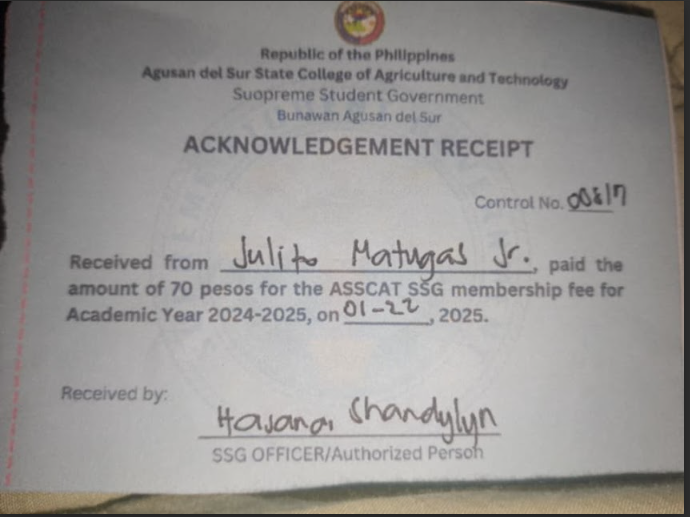 Republic of the Philippines
Agusan del Sur State College of Agriculture and Technology
Suopreme Student Government
Bunawan Agusan del Sur
ACKNOWLEDGEMENT RECEIPT
Control No.
Received from Julito Matugas Jr., paid the
amount of 70 pesos for the ASSCAT SSG membership fee for
Academic Year 2024-2025, on 01-22, 2025.
Received by:
Shandylyn
SSG OFFICER/Authorized Person